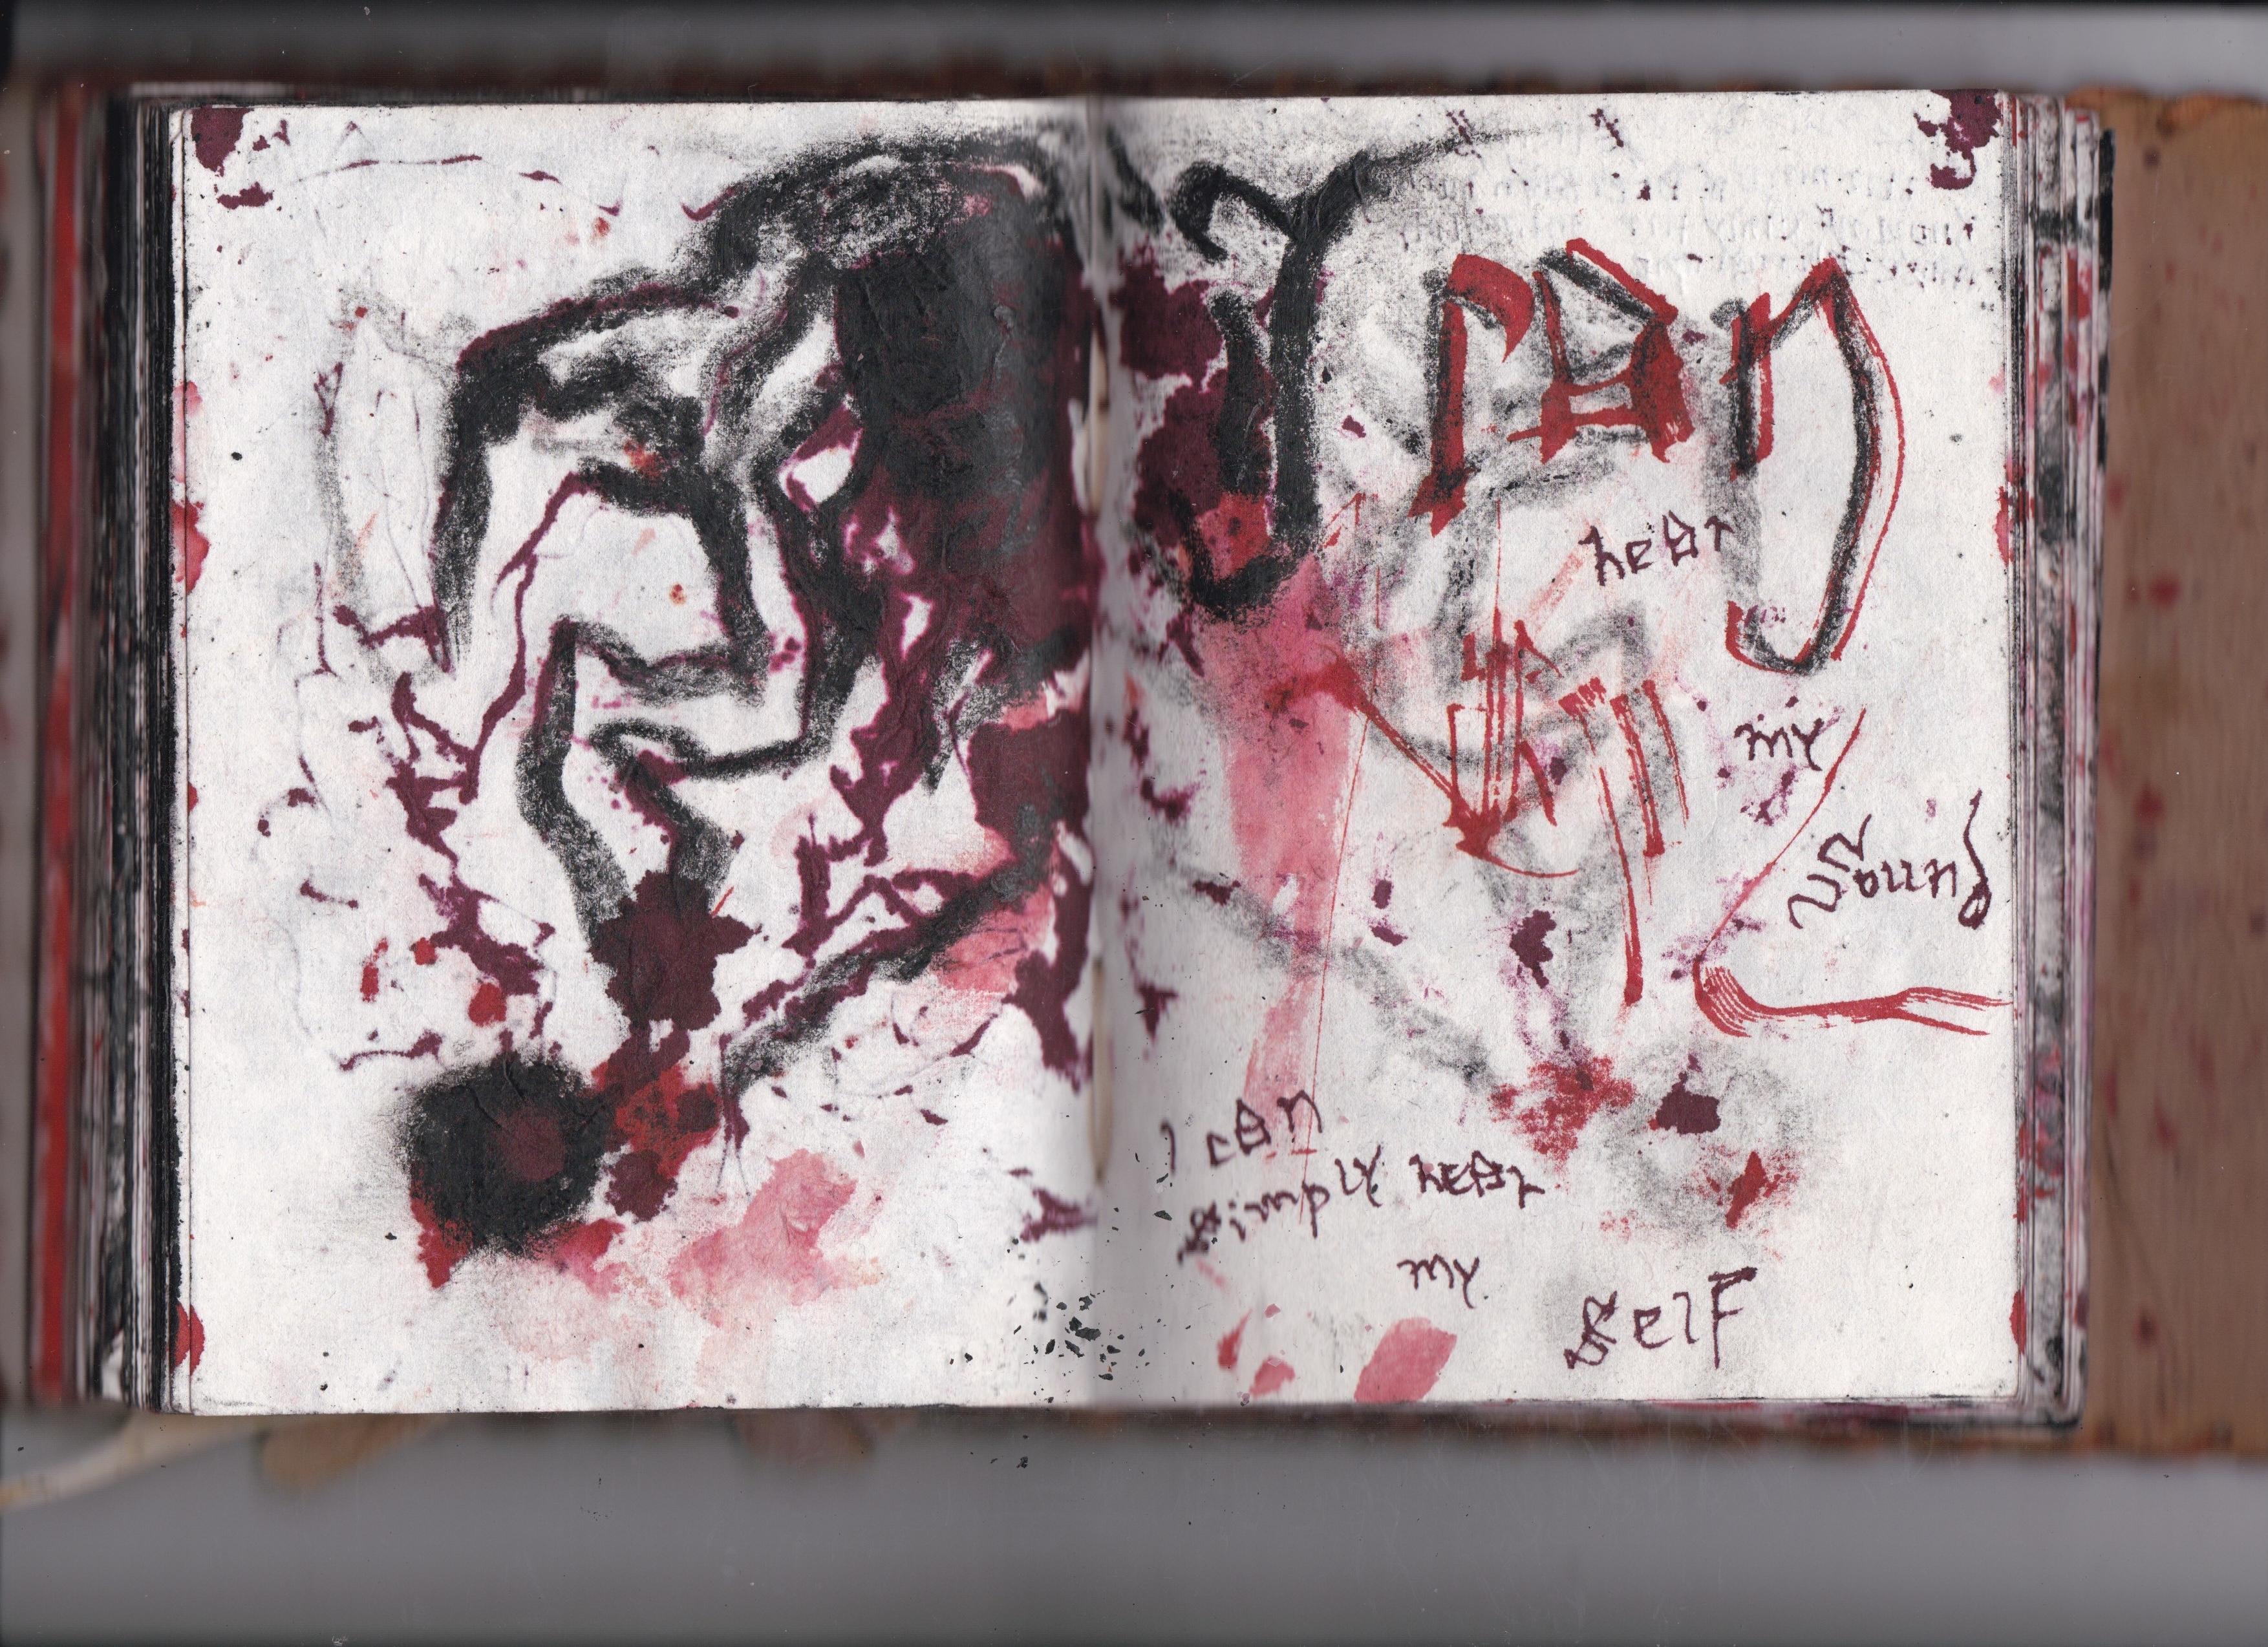 I can
hear
my
wound
I can
simply hear
my
self